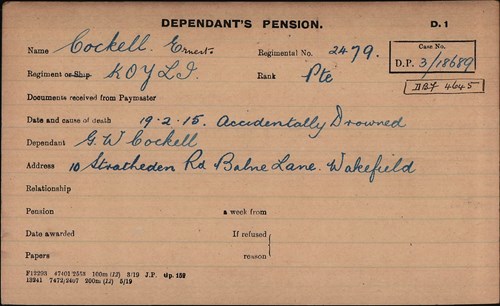 DEPENDANT'S PENSION. D. 1
Name Cockell. Ernest Regimental No. 2479. Case No.
Regiment or Ship KOYLI. Rank Pte D.P. 3/18689
DBJ 4645
Documents received from Paymaster
Date and cause of death 19-2-15. Accidentally Drowned
Dependant G. W Cockell
Address 10 Stratheden Rd Balne Lane. Wakefield
Relationship
Pension a week from
Date awarded If refused
Papers reason
F12293 47401/2553 100m (JJ) 3/19 J.P. Gp. 159
13941 7472/2497 200m (JJ) 5/19